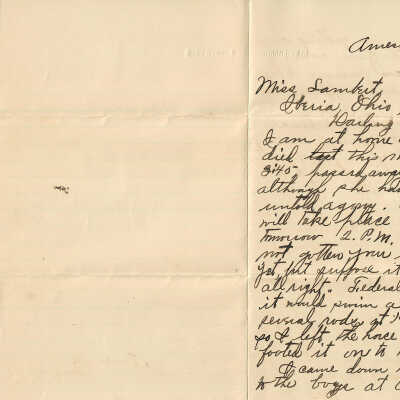 Miss Lambert
Iberia, Ohio,
Darling
I am at home
died last this
3:45 passed away
although she had
untold agony.
will take place
tomorrow 2. P.M.
not gotten your
yet but suppose it
all right. "Federal
it would swim a
several rods, at
so I left the horse
footed it on to
I came down
to the boys at